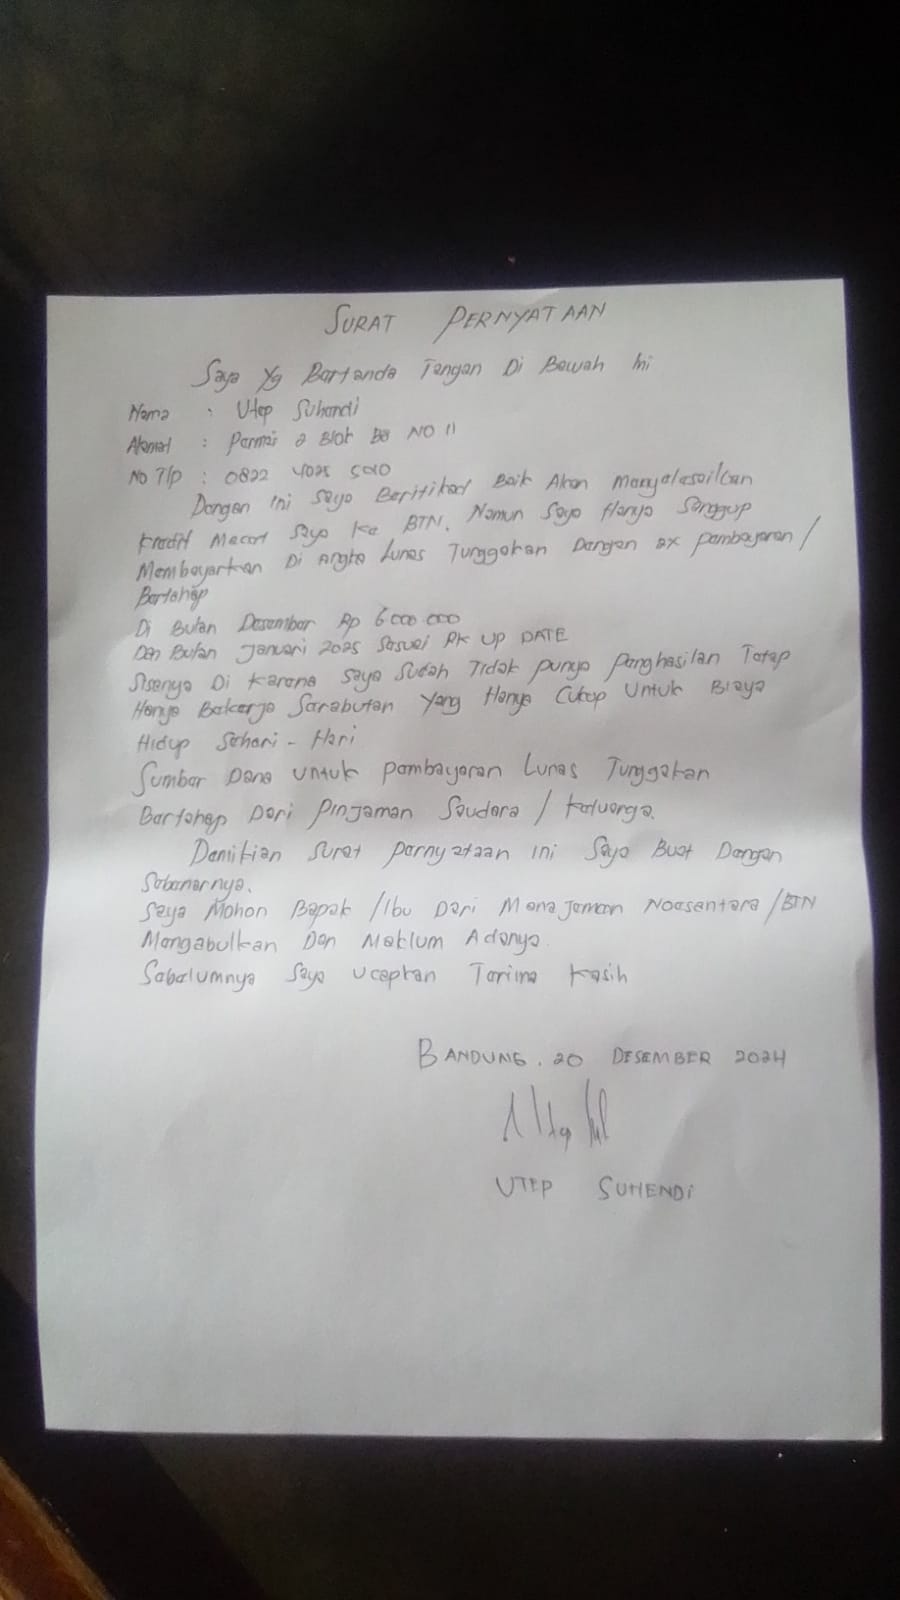 SURAT PERNYATAAN
Saya Yg Bertanda Tangan Di Bawah Ini
Nama : Utep Suhendi
Alamat : Permai 2 Blok B8 NO 11
No Tlp : 0822 4025 5010
Dengan Ini Saya Beritikad Baik Akan Menyelesaikan
Kredit Macet Saya Ke BTN, Namun Saya Hanya Sanggup
Membayarkan Di Angka Lunas Tunggakan Dengan 2x pembayaran /
Bertahap
Di Bulan Desember Rp 6.000.000
Dan Bulan Januari 2025 Sesuai RK UP DATE
Sisanya Di Karena Saya Sudah Tidak punya Penghasilan Tetap
Hanya Bekerja Serabutan Yang Hanya Cukup Untuk Biaya
Hidup Sehari - Hari
Sumber Dana Untuk Pembayaran Lunas Tunggakan
Bertahap Dari Pinjaman Saudara / Keluarga.
Demikian Surat pernyataan ini Saya Buat Dengan
Sebenarnya.
Saya Mohon Bapak / Ibu Dari Manajemen /BTN
Mengabulkan Dan Maklum Adanya.
Sebelumnya Saya Ucapkan Terima Kasih
BANDUNG, 20 DESEMBER 2024
UTEP SUHENDI